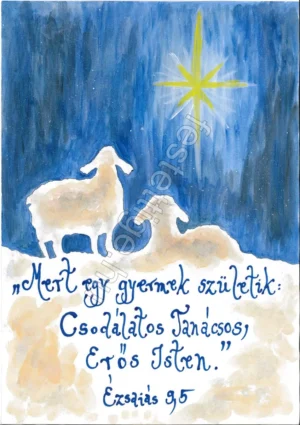 „Mert egy gyermek születik:
Csodálatos Tanácsos,
Erős Isten.”
Ézsaiás 9,5